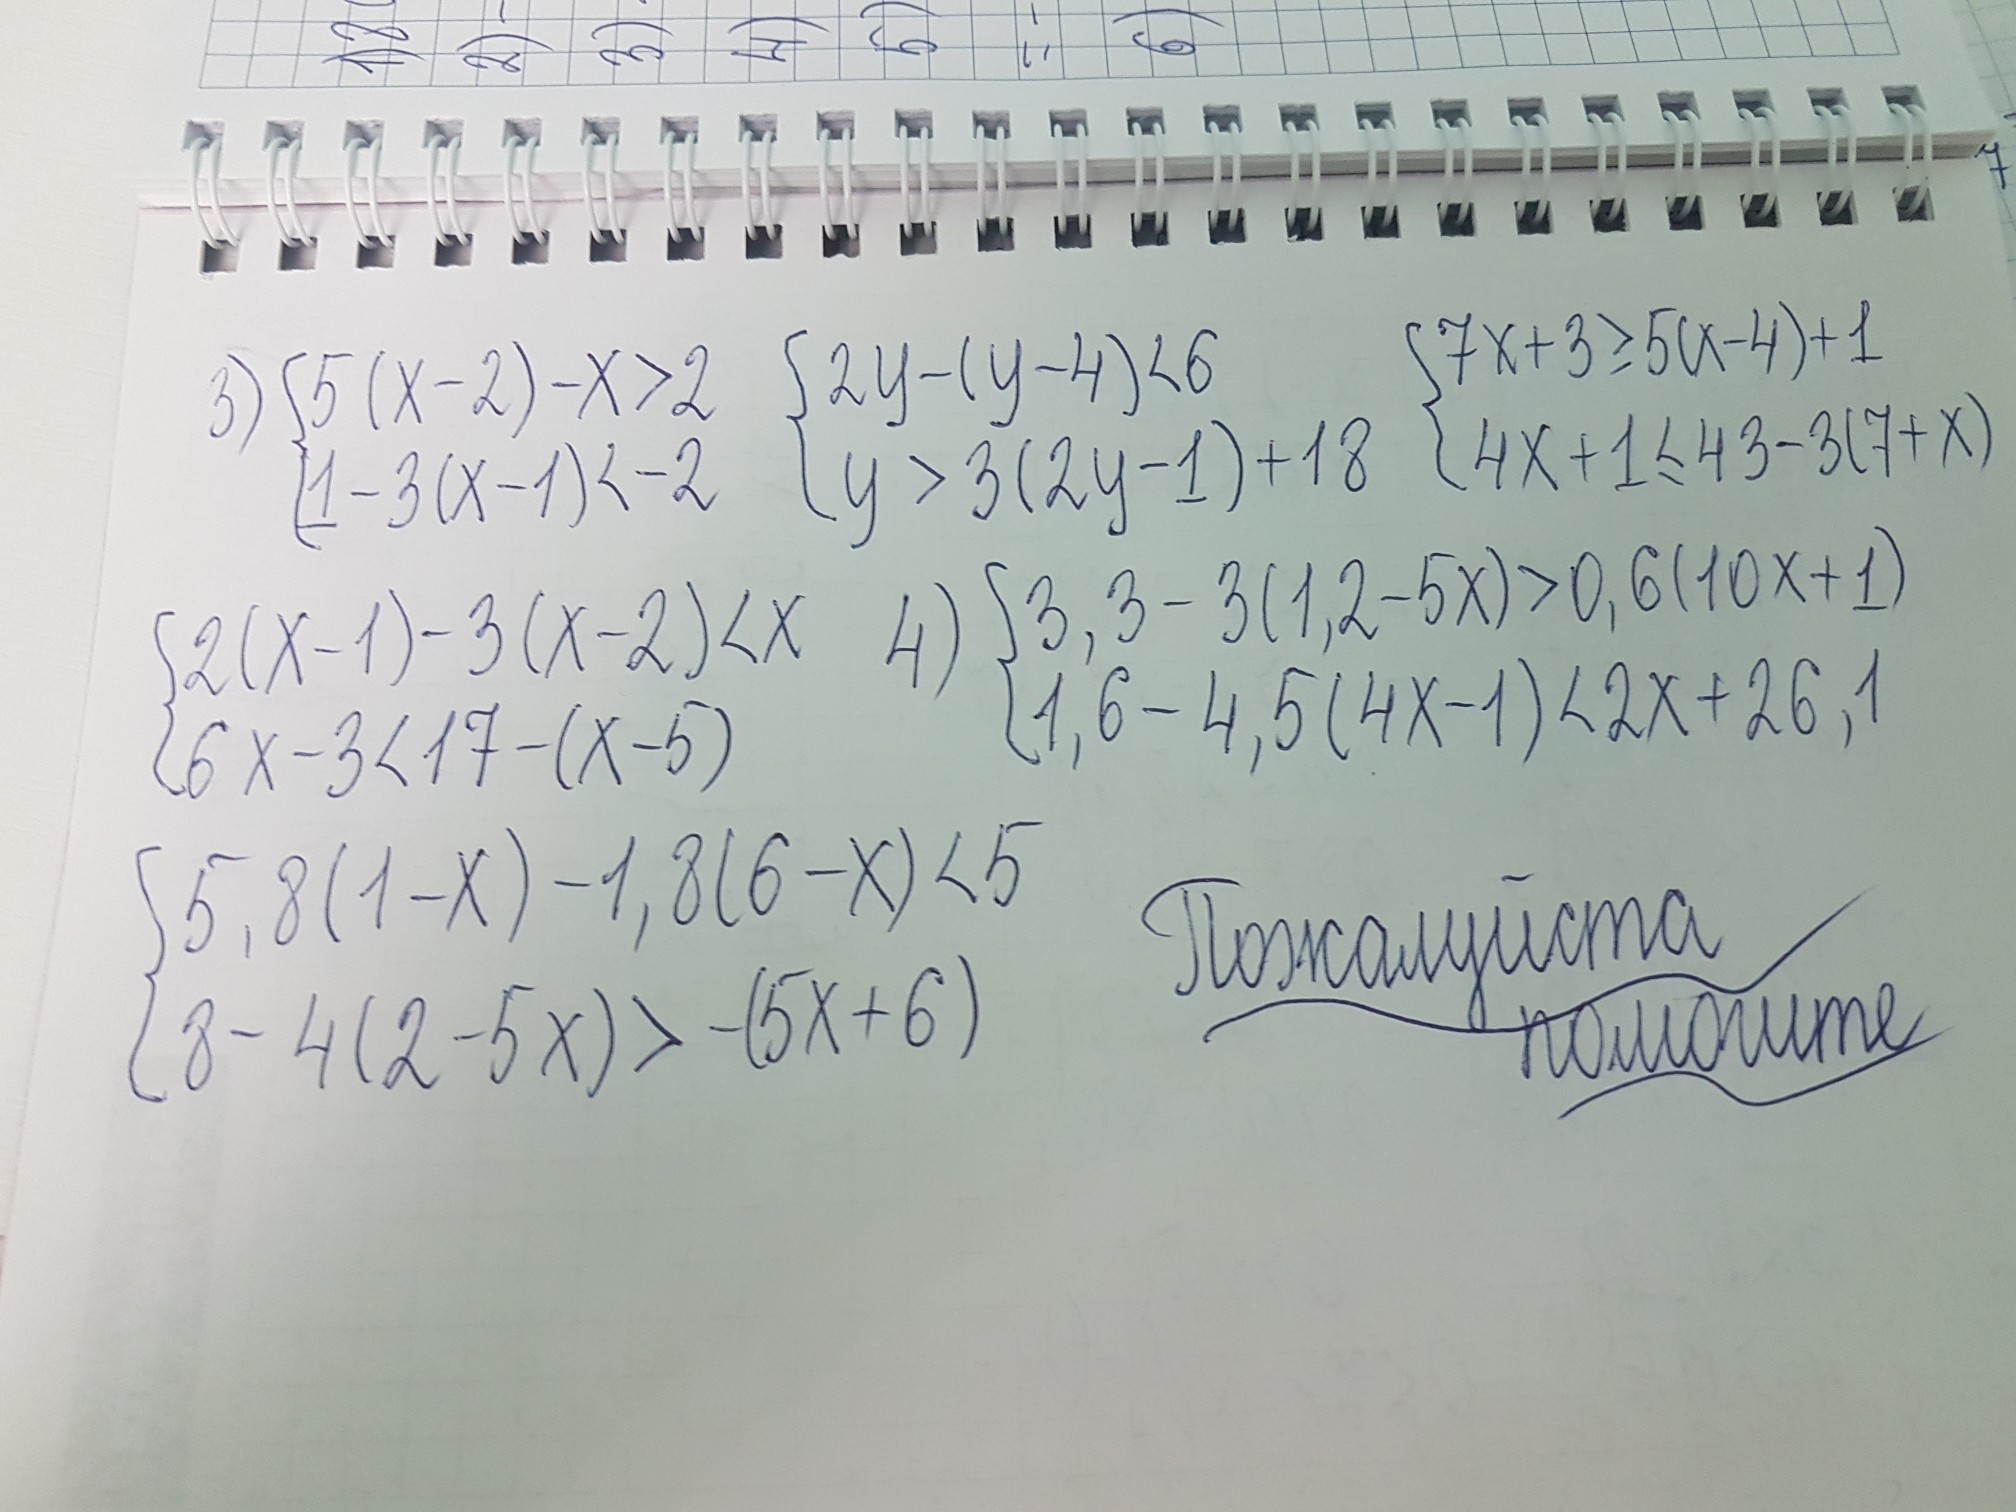 3) {5(x-2)-x>2
{1-3(x-1)<-2
{2y-(y-4)<6
{y>3(2y-1)+18
{7x+3≥5(x-4)+1
{4x+1≤43-3(7+x)
{2(x-1)-3(x-2)<x
{6x-3<17-(x-5)
4) {3,3-3(1,2-5x)>0,6(10x+1)
{1,6-4,5(4x-1)<2x+26,1
{5,8(1-x)-1,8(6-x)<5
{8-4(2-5x)>-(5x+6)
Пожалуйста
помогите